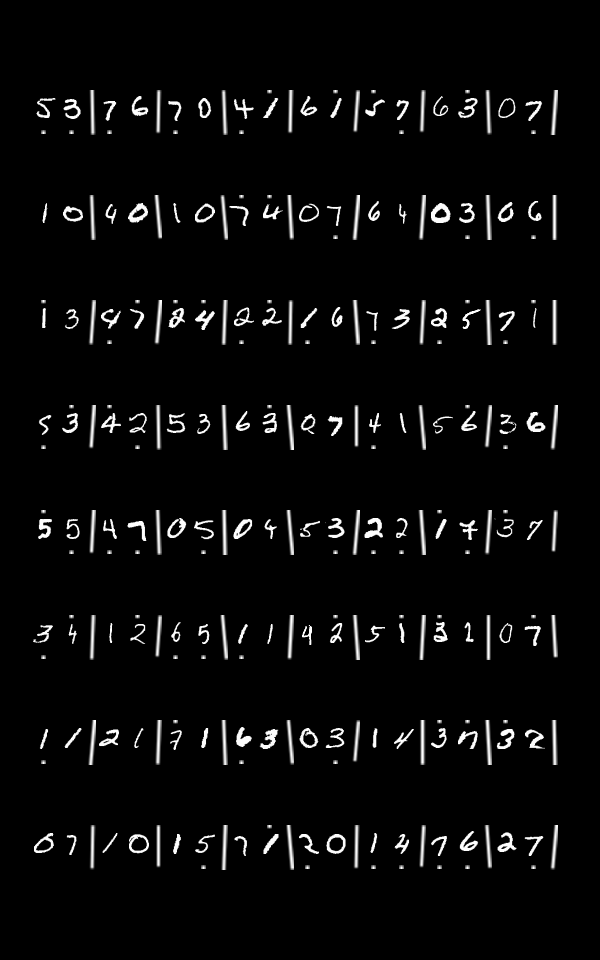 5̣ 3̣ | 7̣ 6 | 7̣ 0 | 4̣ 1̇ | 6 1̇ | 5̇ 7̣ | 6 3̇ | 0 7̣ |
1 0 | 4 0 | 1 0 | 7̇ 4̇ | 0 7̣ | 6 4 | 0 3̣ | 0 6̣ |
1̇ 3 | 4̣ 7 | 2̇ 4̇ | 2̣ 2̇ | 1̇ 6 | 7̣ 3 | 2̣ 5̇ | 7̣ 1̇ |
5̣ 3̇ | 4̇ 2̣ | 5 3 | 6 3̇ | 0 7 | 4̣ 1 | 5 6̇ | 3̣ 6 |
5̇ 5 | 4 7̣ | 0 5̣ | 0 4 | 5 3̣ | 2̣ 2̣ | 1̇ 7̇ | 3̇ 7 |
3̣ 4̇ | 1 2̇ | 6̣ 5̣ | 1̣ 1 | 4 2̇ | 5 1̇ | 3̇ 1 | 0 7̇ |
1̣ 1 | 2 1 | 7̇ 1 | 6̣ 3 | 0 3̣ | 1 4 | 3̇ 7̇ | 3̇ 2 |
0 7 | 1 0 | 1 5̣ | 7 1̇ | 2̣ 0 | 1̣ 4̣ | 7̣ 6̣ | 2 7̣ |